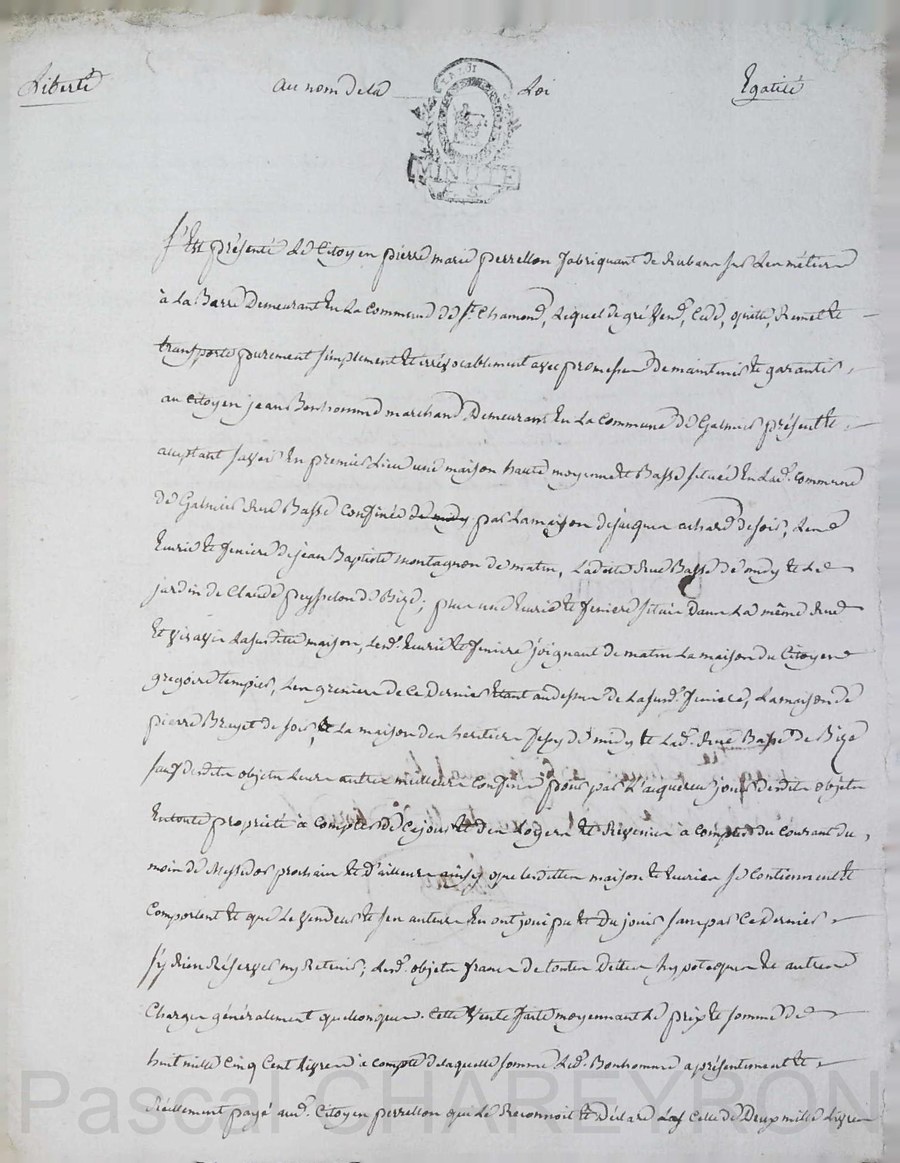 Liberté au nom de la Loi Egalité
LA LOI
MINUTE
S'Est présenté Le Citoyen pierre marie perrellon fabriquant de Rubans
à La Barre Demeurant En La Commune de St. Chamond, Lequel de gré Vend, Cede, quitte, Remet et
transporte purement simplement et irrévocablement avec promesse De maintenir et garantir
au citoyen jean Bonhomme marchand Demeurant En La Commune de présent et
aceptant savoir En premier Lieu une maison haute moyenne et Basse située En Lad. Commune
de Rue Basse Confinée de midy par La maison de jacques achard de soir, Les
Eurie et feniere de jean Baptiste montagnon de matin, La ditte Rue Basse de midy et Le
jardin de Claude peysselon de Bize; plus une Eurie et feniere située Dans La même Rue
Et visavis La susditte maison, Lesd. Eurie et feniere joignant de matin La maison du Citoyen
gregoire tempier, Les greniers de ce dernier étant au dessus de La susd. feniere, La maison de
pierre de soir, et La maison des heritiers de midy et Lad. Rue Basse de Bize
sauf desdits objets Leurs autres meilleurs Confins, pour par L'aquereur jouir desdits objets
En toute propriété à compter de ce jour et des Loyers et Revenus à compter du Courant du
mois de Messidor prochain et d'ailleurs ainsy que lesdittes maison et Euries se Contiennent et
Comportent et que Le Vendeur et ses auteurs En ont joui pu et Du jouir sans par Ce Dernier
s'y Rien Réserver ny Retenir; Lesd. objets francs de toutes Dettes hypoteques et autres
Charges généralement quelconques. Cette Vente faite moyennant Le prix et somme de
huit mille Cinq Cent Livres à compte de laquelle somme Led. Bonhomme a présentement et
Réellement payé aud. Citoyen perrellon qui Le Reconnoit et Déclare Celle de Deux mille Livres
Pascal CHAREYRON